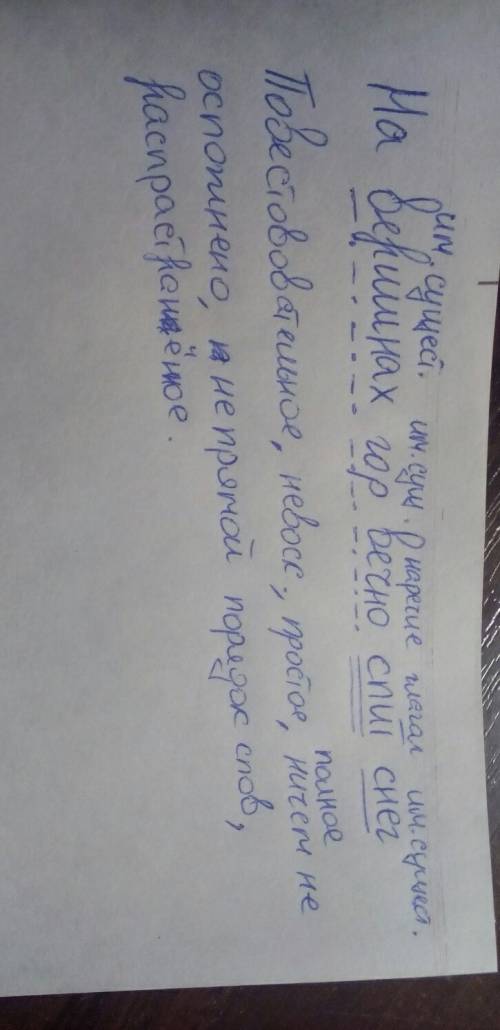 им сущест. им.сущ. наречие глагол им.сущест.
На вершинах гор вечно спит снег
Повествовательное, невоск, простое, полное, ничем не
осложнено, не прямой порядок слов,
распрастранённое.